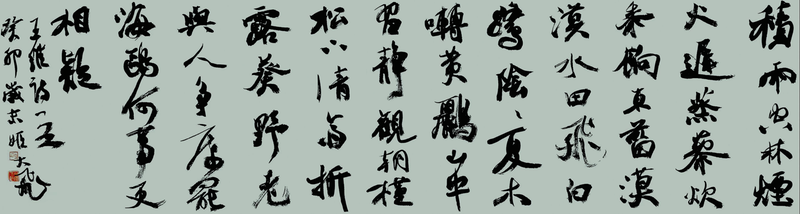 積雨空林煙
火遲蒸藜炊
黍餉東菑漠
漠水田飛白
鷺陰陰夏木
囀黃鸝山中
習靜觀朝槿
松下清齋折
露葵野老
與人爭席罷
海鷗何事更
相疑
王維詩一首
癸卯歲姬大飛